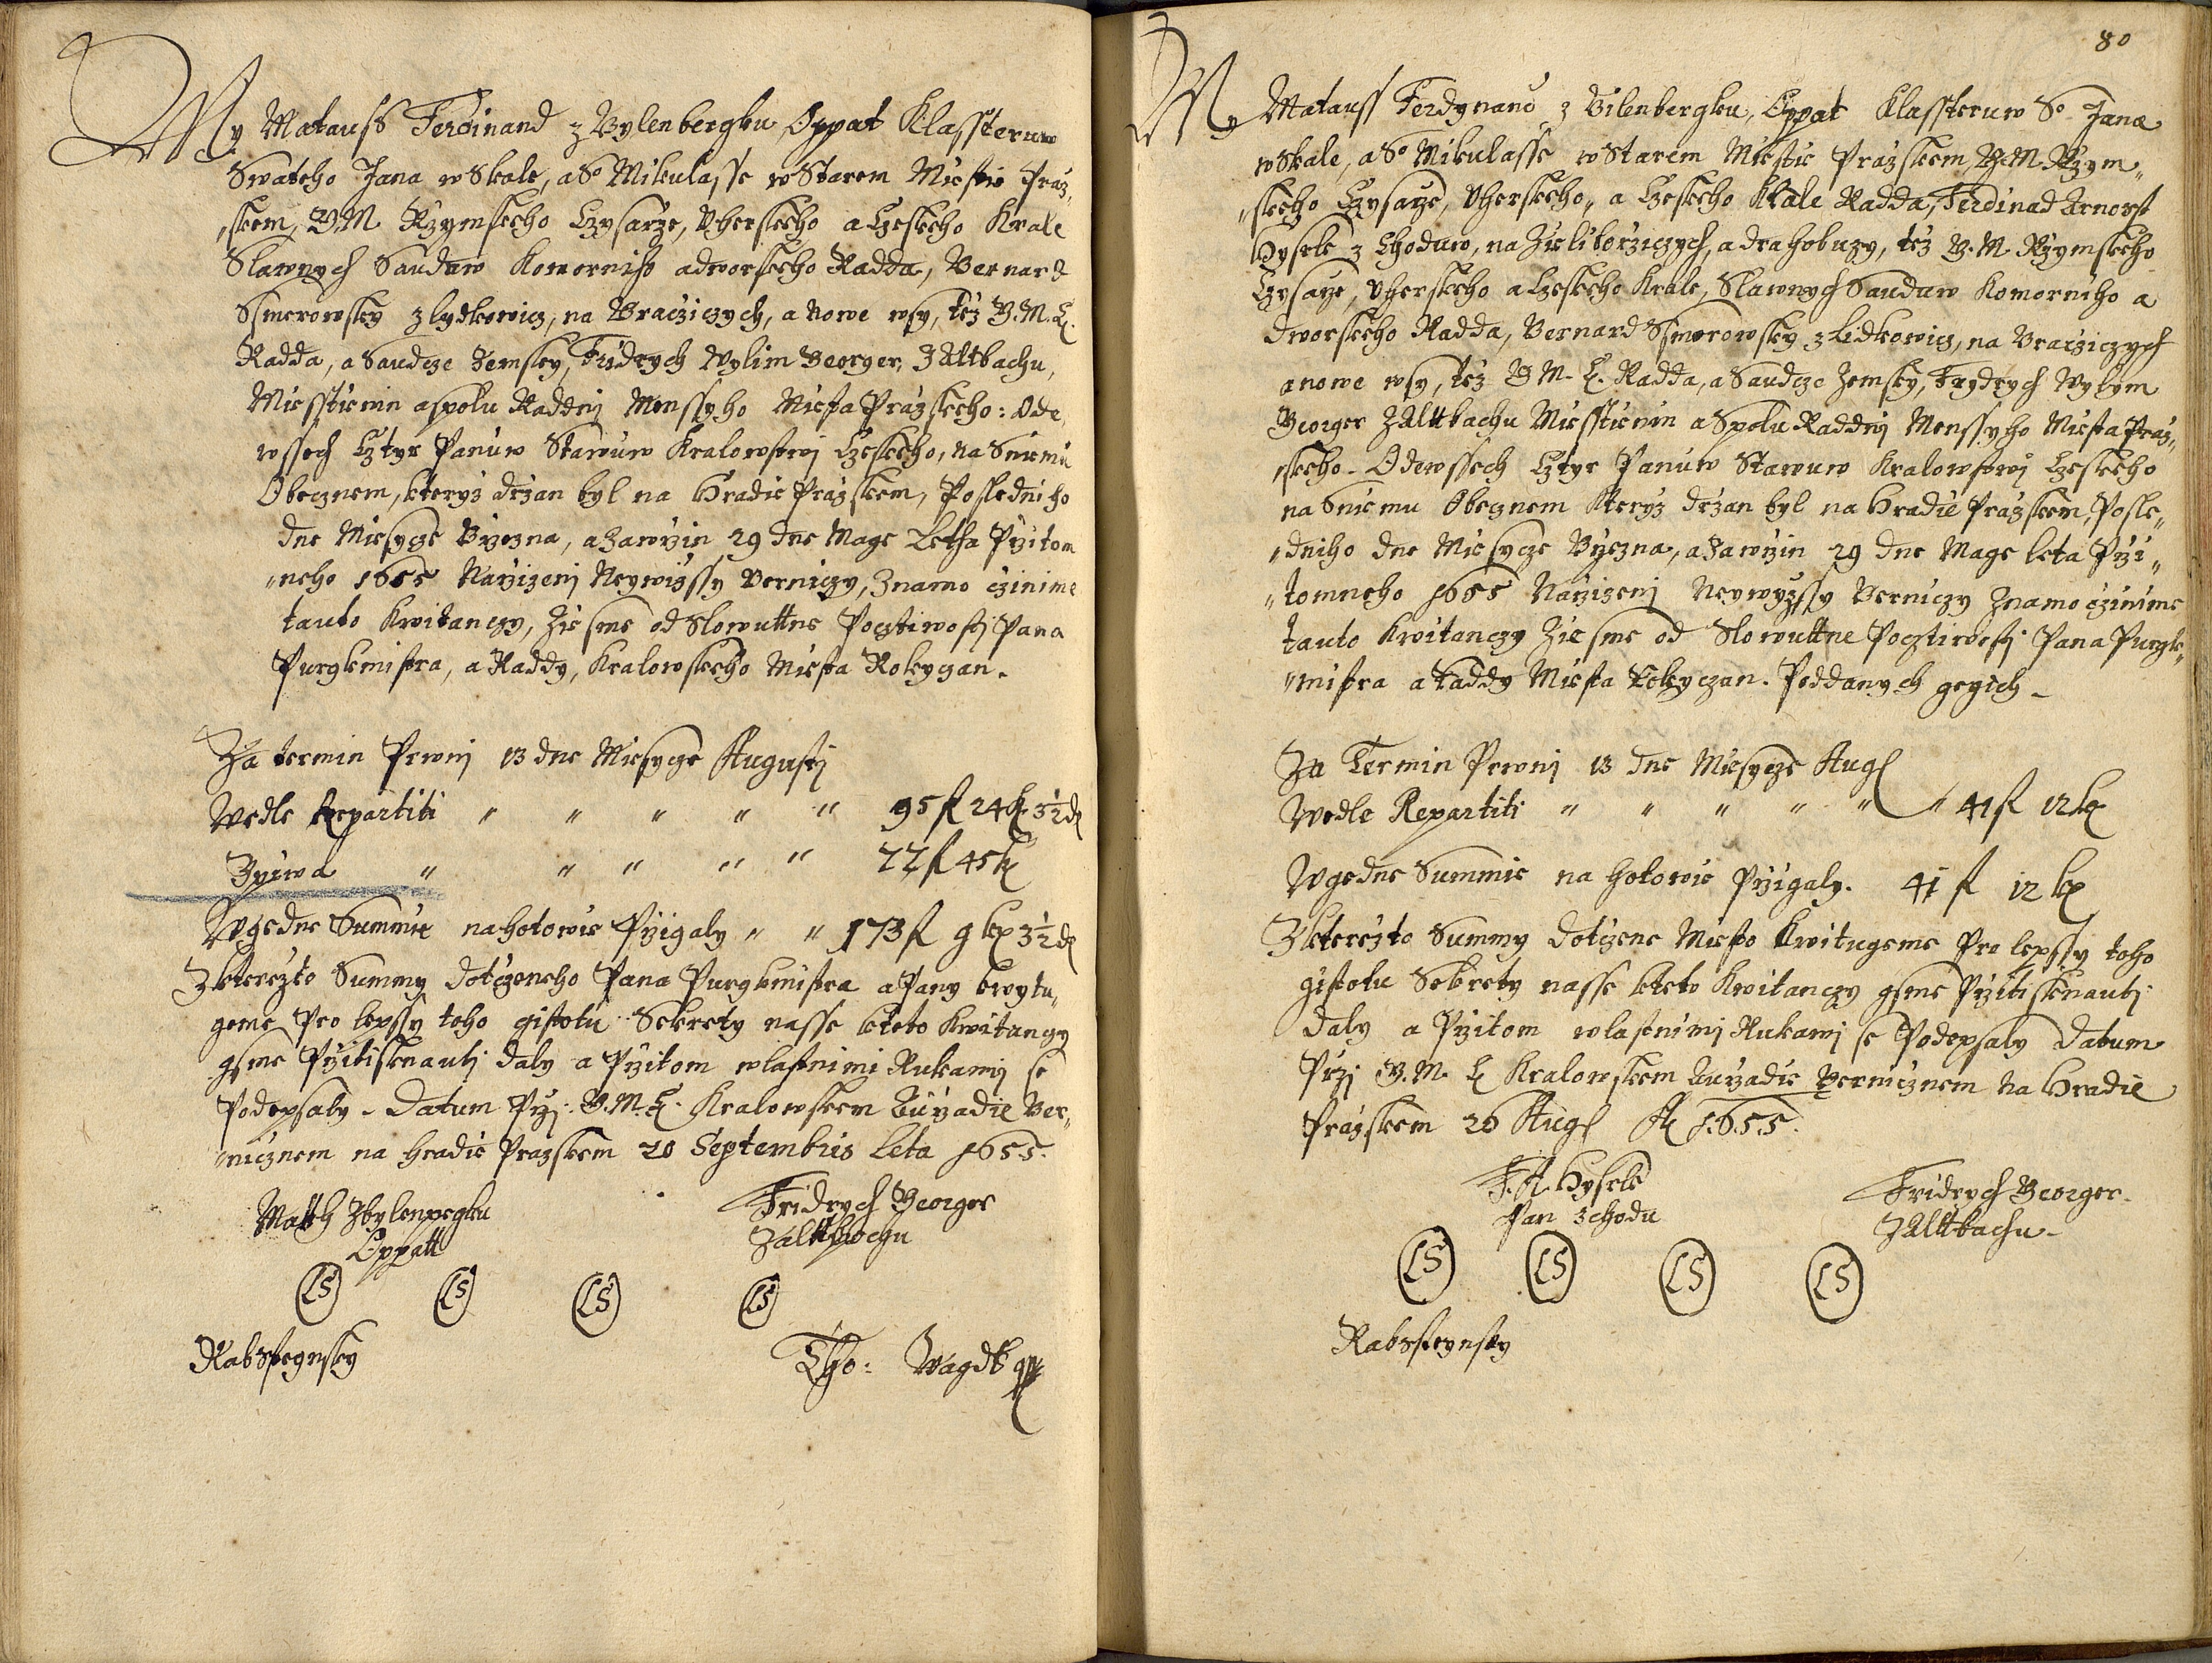 My Matauss Ferdinand z Bylenbergku, Oppat Klassteruw
Swateho Jana w Skale, a So Mikulasse w Starem Miestie Praz„
„skem, G.M. Rzymskeho Czysarze, Uherskeho a Czeskeho Krale
Slawnych Sauduw Komorniho a dworskeho Radda, Bernard
Ssmerowsky z lydkowicz, na Braczieziczych, a nowe wsy, tez G.M.C.
Radda, a Saudcze Zemsky, Fridrych Wylim Georger, Z Altbachu,
Miesstienin a spolu Raddnj Menssyho Miesta Prazskeho: Ode
wssech Cztyr Panuw Stawuw Kralowstwj Czeskeho, na Sniemu
Obecznem, kteryz drzan byl na Hradie Prazskem, Posledniho
dne Miesycze Brzezna, a zawrzin 29 dne Mage Letha Przitom
„neho 1655 Narzizenj Neywizssy Berniczy, Znamo czinime
tauto Kwitanczy, Zie sme od Slowuttne Pocztiwostj Pana
Purgkmistra, a Raddy, Kralowskeho Miesta Rokyczan.
Za termin Prwnj 13 dne Miesycze Augustj
Wedle Repartiti „ „ „ „ „ 95 fl 24 k 3½ d
Zbywa „ „ „ „ „ 77 fl 45 k
W gedne Summie na hotowie Przigaly „ „ 173 fl 9 kr 3½ d
Z kterezto Summy dotczeneho Pana Purgkmistra a Pany kwytu„
geme Pro lepssy toho gistotu Sekrety nasse kteto Kwitanczy
gsme Przitisknautj daly a Przitom wlastnimi Rukamj se
Podepsaly. Datum Przj. G.M.C. Kralowskem Aurzadie Ber„
„nicznem na Hradie Prazskem 20 Septembris Leta 1655.
Matth Zbylenpergku
Oppatt
Fridrych Georger
Z altbachu
LS LS LS LS
Rabsstegnsky
Tho: Wagdk
80
My Matauss Ferdynand z Bilenbergku, Oppat Klassteruw So Jana
w Skale, a So Mikulasse w Starem Miestie Prazskem, G.M. Rzym„
„skeho Czysarze, Uherskeho, a Czeskeho Krale Radda, Ferdinad Arnosst
Hysrle z Choduw, na Zieliborziczych, a drahobuzy, tez G.M. Rzymskeho
Czysarze, Uherskeho a Czeskeho Krale, Slawnych Sauduw Komorniho a
dworskeho Radda, Bernard Ssmerowsky z Lidkowicz, na Bracziczych
a nowe wsy, tez G.M.C. Radda, a Saudcze Zemsky, Frydrych Wylym
Georger Z Altbachu Miesstienin a Spolu Raddnj Menssyho Miesta Praz„
„skeho. Ode wssech Cztyr Panuw Stawuw Kralowstwj Czeskeho
na Sniemu Obecznem kteryz drzan byl na Hradie Prazskem, Posle„
„dniho dne Miesycze Brzezna, a zawrzin 29 dne Mage leta Przi„
„tomneho 1655 Narzizenj Neywyzssy Berniczy Znamo czinime
tauto Kwitanczy Zie sme od Slowuttne Pocztiwostj Pana Purgk„
„mistra a Raddy Miesta Rokyczan. Poddanych gegich
Za Termin Prwnj 13 dne Miesycze Aug
Wedle Repartiti „ „ „ „ „ „ 41 fl 12 k
W gedne Summie na hotowie Przigaly. 41 fl 12 kr
Z kterezto Summy dotczene Miesto Kwitugeme Pro lepssy toho
gistotu Sekrety nasse kteto Kwitanczy gsme Przitisknautj
daly a Przitom wlastnimj Rukamj se Podepsaly Datum
Przj G.M.C Kralowskem Aurzadie Bernicznem na Hradie
Prazskem 26 Aug A 1655.
F.A. Hysrle
Pan z chodu
Fridrych Georger
Z Alttbachu
LS LS LS LS
Rabssteynsky